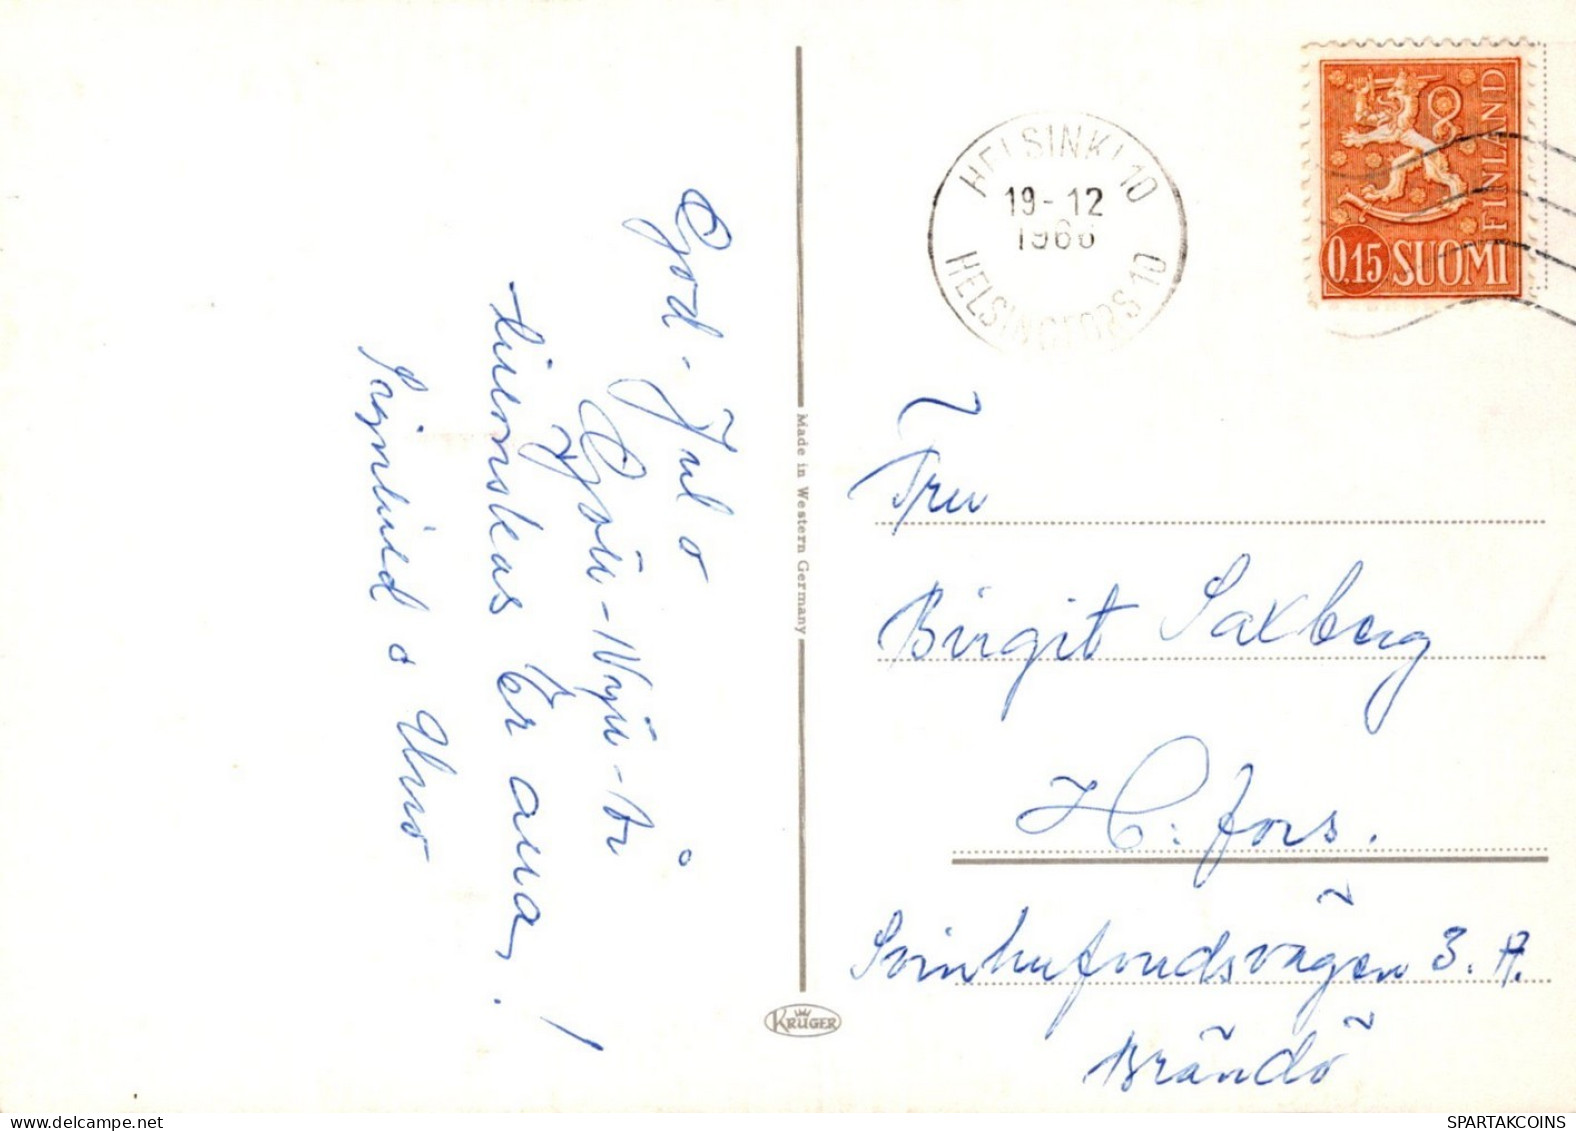 God-Jul o
Gott-Nytt-År
tillönskas Er alla,
Sigmund o Urro
Made in Western Germany
KRÜGER
HELSINKI 10
19-12
1966
HELSINGFORS 10
FINLAND
0,15 SUOMI
Fru
Birgit Saxberg
H:fors.
Svinhufvudsvägen 3. A.
Brändö
SPARTAKCOINS